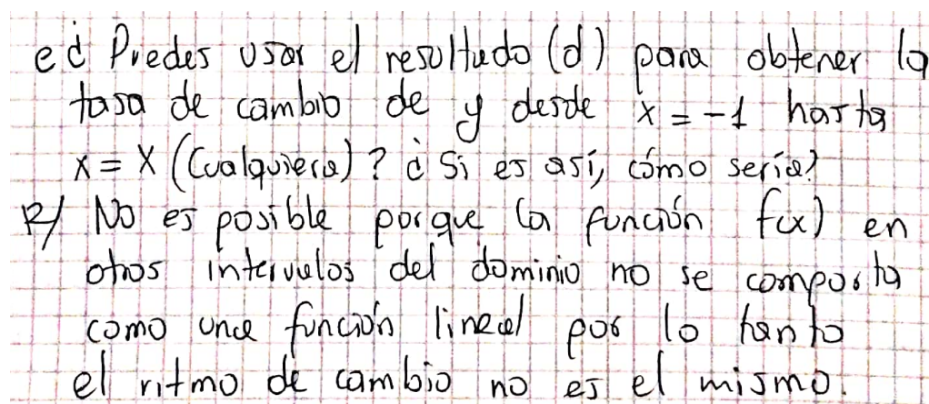 e ¿ Puedes usar el resultado (d) para obtener la
tasa de cambio de y desde x = -1 hasta
x = x (Cualquiera) ? ¿ Si es así, cómo sería?
R/ No es posible porque la función f(x) en
otros intervalos del dominio no se comporta
como una función lineal por lo tanto
el ritmo de cambio no es el mismo.